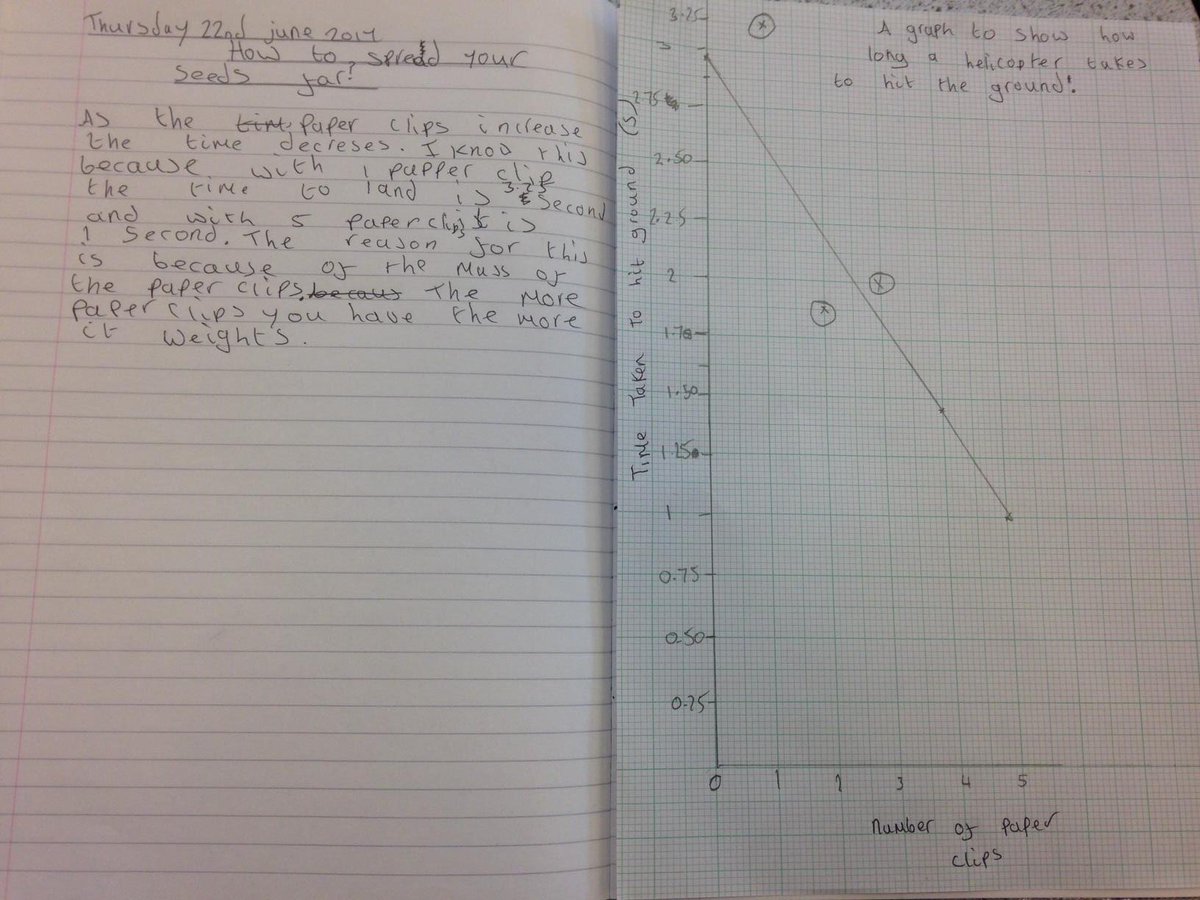 Thursday 22nd june 2017
How to spread your
seeds far!
As the time paper clips increase
the time decreses. I knoo this
because with 1 papper clip
the time to land is 3.25 second
and with 5 paperclips it is
1 second. The reason for this
is because of the Mass of
the paper clips, becaus The more
paper clips you have the more
it weights.
A graph to show how
long a helicopter takes
to hit the ground!
Time Taken To hit ground (s)
3.25
3
2.75
2.50
2.25
2
1.75
1.50
1.25
1
0.75
0.50
0.25
0 1 2 3 4 5
number of paper
clips